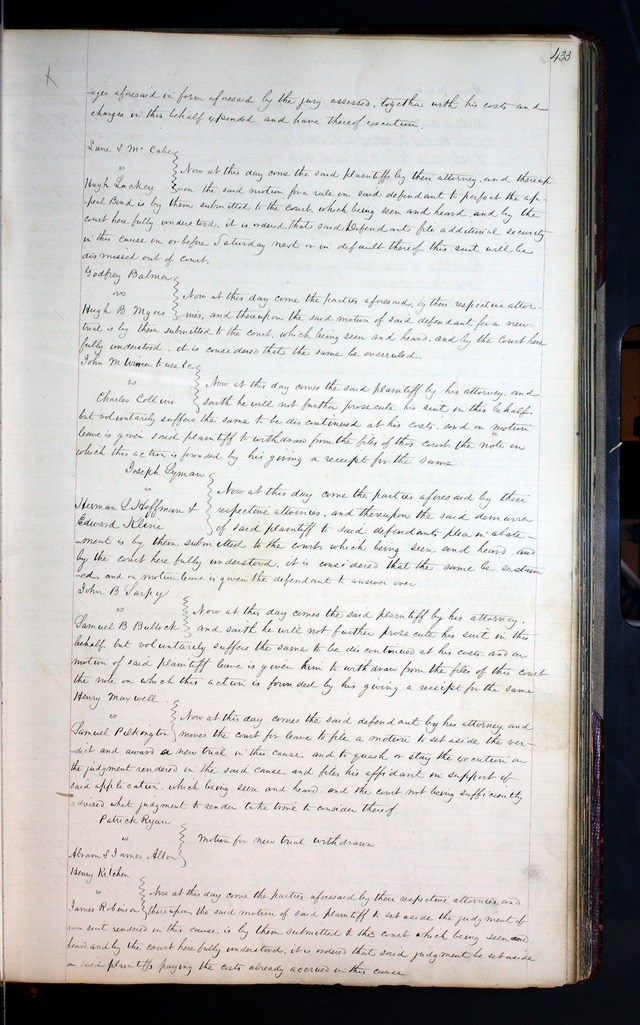 433
-ages aforesaid in form aforesaid by the jury assessed, together with his costs and
charges in this behalf expended and have thereof execution.
Lane & Mc Cabe
vs
Hugh Lackey
Now at this day come the said plaintiffs by their attorney, and thereup
-on the said motion for a rule on said defendant to perfect the ap-
peal Bond is by them submitted to the court, which being seen and heard and by the
court here fully understood, it is ordered that said Defendant file additional security
in this cause on or before Saturday next or in default thereof this suit will be
dismissed out of court.
Godfrey Balmer
vs
Hugh B Myers
Now at this day come the parties aforesaid, by their respective attor-
nies, and thereupon the said motion of said defendant for a new
trial is by them submitted to the court, which being seen and heard, and by the Court here
fully understood, it is considered that the same be overruled.
John M to use &c
vs
Charles Collins
Now at this day comes the said plaintiff by his attorney, and
saith he will not further prosecute his suit in this behalf,
but voluntarily suffers the same to be discontinued at his costs, and on motion
leave is given said plaintiff to withdraw from the files of this court the note on
which this action is founded by his giving a receipt for the same
Joseph Lyman
vs
Herman L Hoffman &
Edward Kleine
Now at this day come the parties aforesaid by their
respective attornies, and thereupon the said demurrer
of said plaintiff to said defendants plea in abate-
-ment is by them submitted to the court, which being seen and heard and
by the court here fully understood, it is considered that the same be sustain
-ed, and on motion leave is given the defendant to answer over
John B Sarpy
vs
Samuel B Bullock
Now at this day comes the said plaintiff by his attorney,
and saith he will not further prosecute his suit in this
behalf, but voluntarily suffers the same to be discontinued at his costs and on
motion of said plaintiff leave is given him to withdraw from the files of this court
the note on which this action is founded by his giving a receipt for the same
Henry Maxwell
vs
Samuel Pilkington
Now at this day comes the said defendant by his attorney and
moves the court for leave to file a motion to set aside the ver-
dict and award a new trial in this cause, and to quash or stay the execution on
the judgment rendered in the said cause, and files his affidavit in support of
said application, which being seen and heard, and the court not being sufficiently
advised what judgment to render take time to consider thereof
Patrick Ryan
vs
Abram & James Allen
Motion for new trial withdrawn
Henry Kitchen
vs
James Robinson
Now at this day come the parties aforesaid by their respective attornies, and
thereupon the said motion of said plaintiff to set aside the judgment of
non suit rendered in this cause, is by them submitted to the court which being seen and
heard and by the court here fully understood, it is ordered that said judgment be set aside
on said plaintiffs paying the costs already accrued in this cause